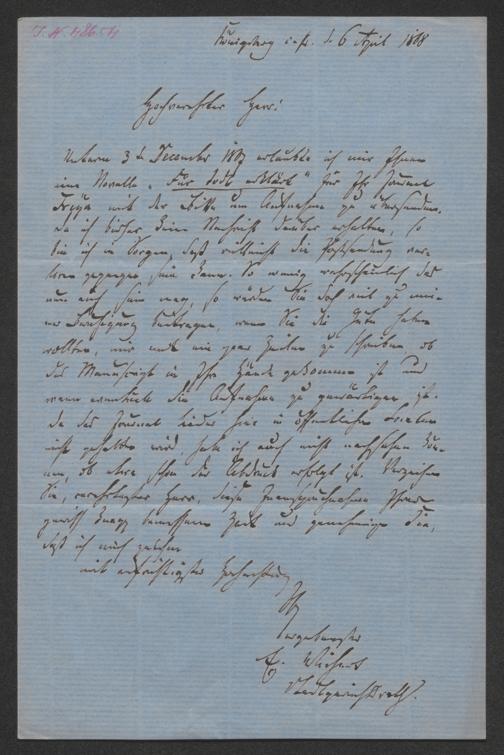 I. N. 486.41
Königsberg i. Pr. d. 6 April 1868
Hochverehrter Herr!
Unterm 3 t. December 1867 erlaubte ich mir Ihnen
eine Novelle „Für todt erklärt" für Ihr Journal
Freya mit der Bitte um Aufnahme zu übersenden.
Da ich bisher keine Nachricht darüber erhalten, so
bin ich in Sorgen, daß vielleicht die Postsendung ver-
loren gegangen sein kann. So wenig wahrscheinlich das
nun auch sein mag, so würden Sie doch viel zu mei-
ner Beruhigung beitragen, wenn Sie die Güte haben
wollten, mir mit ein paar Zeilen zu schreiben, ob
das Manuscript in Ihre Hände gekommen ist und
wann eventuell die Aufnahme zu gewärtigen ist.
Da das Journal leider hier in öffentlichen
nicht gehalten wird, habe ich auch nicht nachsehen kön-
nen, ob etwa schon der Abdruck erfolgt ist. Verzeihen
Sie, verehrtester Herr, diese Inanspruchnahme Ihrer
gewiß knapp bemessenen Zeit und genehmigen Sie,
daß ich mich zeichne
mit aufrichtigster Hochachtung
Ihr
ergebenster
E. Wichert
Stadtgerichtsrath.